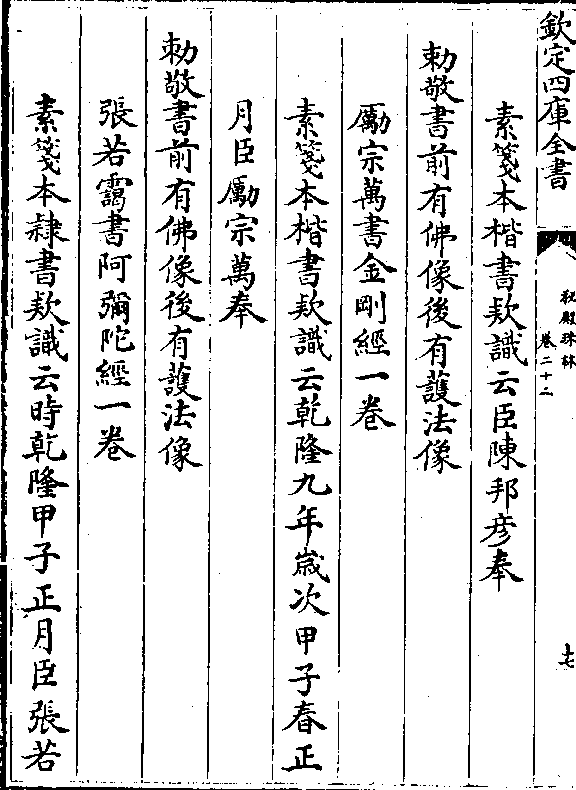 欽定四庫全書
祕殿珠林
卷二十二
七
素箋本楷書欵識云臣陳邦彦奉
勅敬書前有佛像後有護法像
勵宗萬書金剛經一卷
素箋本楷書欵識云乾隆九年嵗次甲子春正
月臣勵宗萬奉
勅敬書前有佛像後有護法像
張若靄書阿彌陀經一卷
素箋本隷書欵識云時乾隆甲子正月臣張若